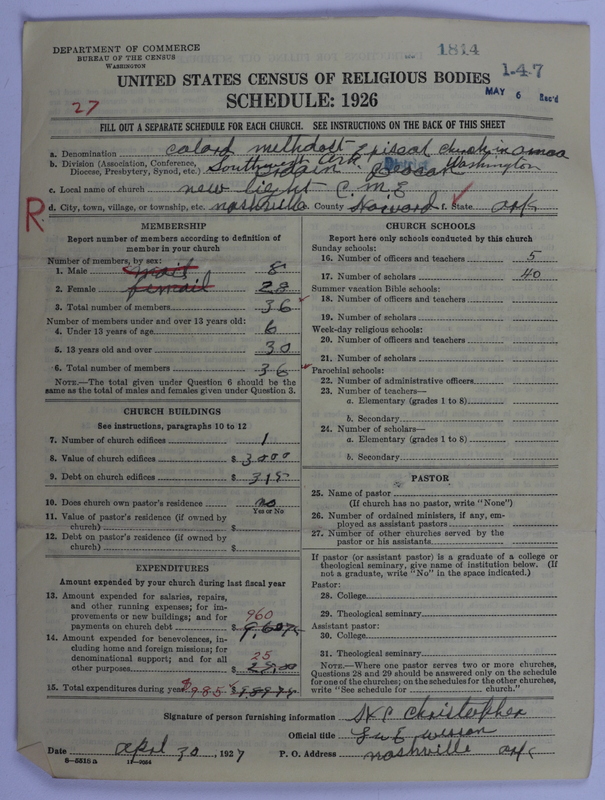 DEPARTMENT OF COMMERCE
BUREAU OF THE CENSUS
WASHINGTON
1814
1-4-7
MAY 6 Rec'd
UNITED STATES CENSUS OF RELIGIOUS BODIES
SCHEDULE: 1926
27
FILL OUT A SEPARATE SCHEDULE FOR EACH CHURCH. SEE INSTRUCTIONS ON THE BACK OF THIS SHEET
a. Denomination colard methdost Episcal church in amaa
b. Division (Association, Conference, Diocese, Presbytery, Synod, etc.) Southwest Ark District Washington
c. Local name of church new light C. M. E
R
d. City, town, village, or township, etc. nashville e. County Howard f. State ark
MEMBERSHIP
Report number of members according to definition of member in your church
Number of members, by sex:
1. Male mail 8
2. Female femail 28
3. Total number of members 36
Number of members under and over 13 years old:
4. Under 13 years of age 6
5. 13 years old and over 30
6. Total number of members 36
NOTE.—The total given under Question 6 should be the same as the total of males and females given under Question 3.
CHURCH BUILDINGS
See instructions, paragraphs 10 to 12
7. Number of church edifices 1
8. Value of church edifices $ 3000
9. Debt on church edifices $
10. Does church own pastor's residence no
Yes or No
11. Value of pastor's residence (if owned by church) $
12. Debt on pastor's residence (if owned by church) $
EXPENDITURES
Amount expended by your church during last fiscal year
13. Amount expended for salaries, repairs, and other running expenses; for improvements or new buildings; and for payments on church debt $ 960
14. Amount expended for benevolences, including home and foreign missions; for denominational support; and for all other purposes $ 25
15. Total expenditures during year $985
CHURCH SCHOOLS
Report here only schools conducted by this church
Sunday schools:
16. Number of officers and teachers 5
17. Number of scholars 40
Summer vacation Bible schools:
18. Number of officers and teachers
19. Number of scholars
Week-day religious schools:
20. Number of officers and teachers
21. Number of scholars
Parochial schools:
22. Number of administrative officers
23. Number of teachers—
a. Elementary (grades 1 to 8)
b. Secondary
24. Number of scholars—
a. Elementary (grades 1 to 8)
b. Secondary
PASTOR
25. Name of pastor
(If church has no pastor, write "None")
26. Number of ordained ministers, if any, employed as assistant pastors
27. Number of other churches served by the pastor or his assistants
If pastor (or assistant pastor) is a graduate of a college or theological seminary, give name of institution below. (If not a graduate, write "No" in the space indicated.)
Pastor:
28. College
29. Theological seminary
Assistant pastor:
30. College
31. Theological seminary
NOTE.—Where one pastor serves two or more churches, Questions 28 and 29 should be answered only on the schedule for one of the churches; on the schedules for the other churches, write "See schedule for church."
Signature of person furnishing information Christopher
Official title
Date april 30, 1927 P. O. Address nashville ark
8-5518a 11-9984